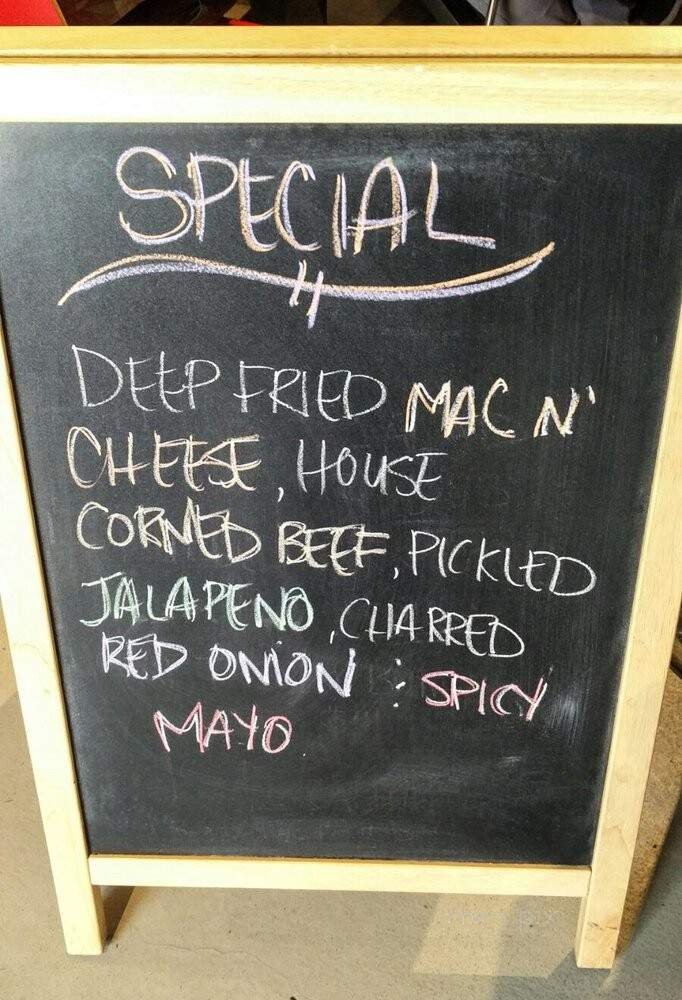 SPECIAL
DEEP FRIED MAC N'
CHEESE, HOUSE
CORNED BEEF, PICKLED
JALAPENO, CHARRED
RED ONION : SPICY
MAYO